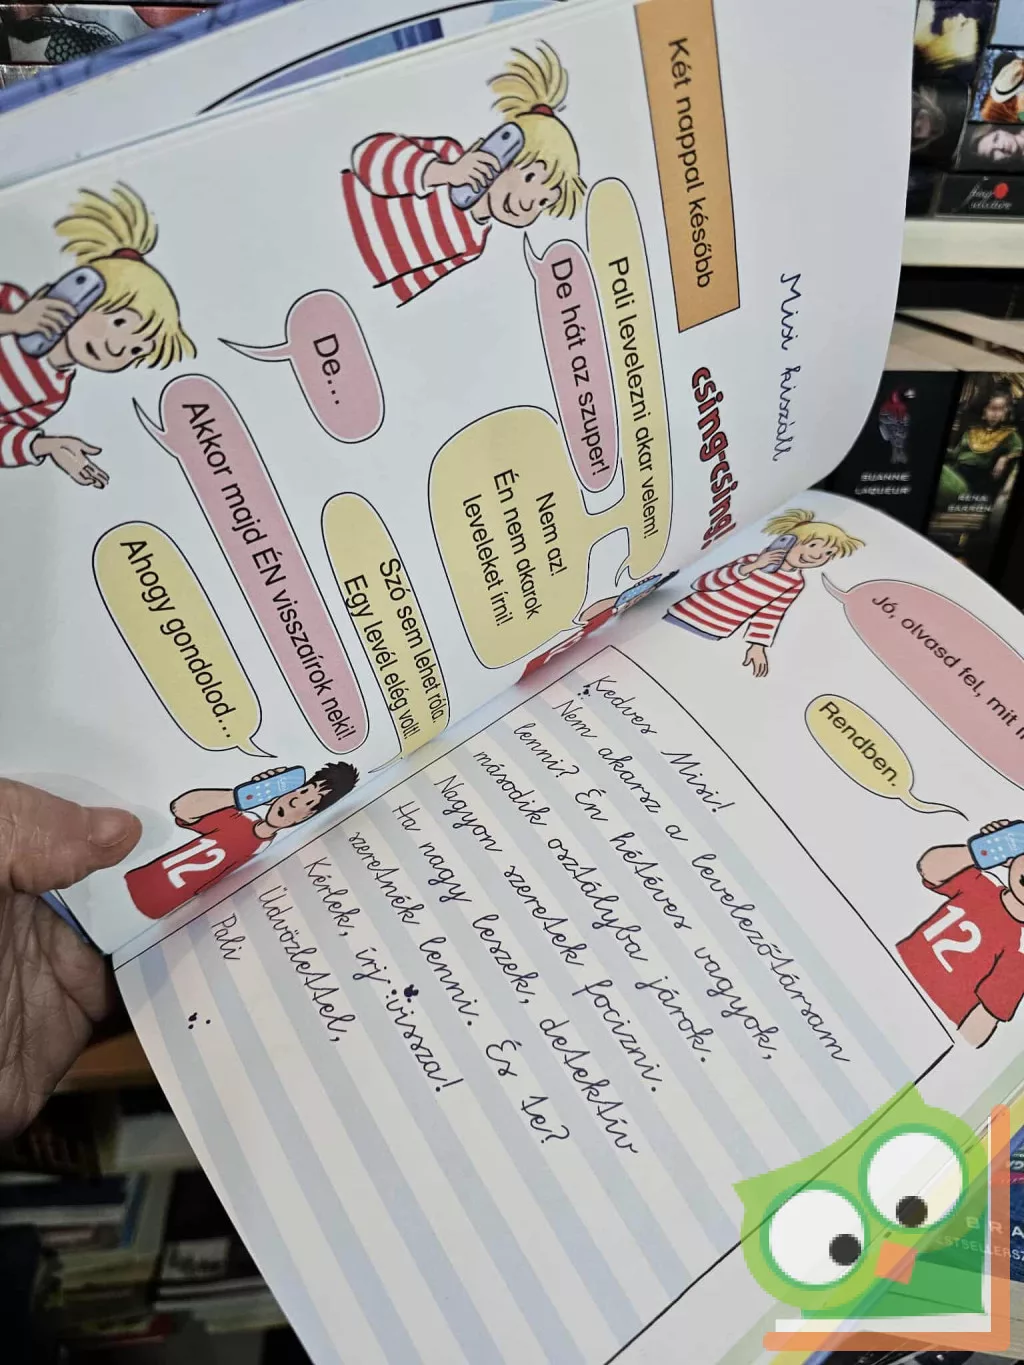 Misi kiszáll
Két nappal később
csing-csing!
Pali levelezni akar velem!
De hát az szuper!
Nem az!
Én nem akarok
leveleket írni!
De...
Szó sem lehet róla.
Egy levél elég volt!
Akkor majd ÉN visszaírok neki!
Ahogy gondolod...
12
Jó, olvasd fel, mit
Rendben.
12
Kedves Misi!
Nem akarsz a levelezőtársam
lenni? Én hétéves vagyok,
második osztályba járok.
Nagyon szeretek focizni.
Ha nagy leszek, detektív
szeretnék lenni. És te?
Kérlek, írj vissza!
Üdvözlettel,
Pali
SUANNE
LAQUEUR
RENA
BARRON
BRA